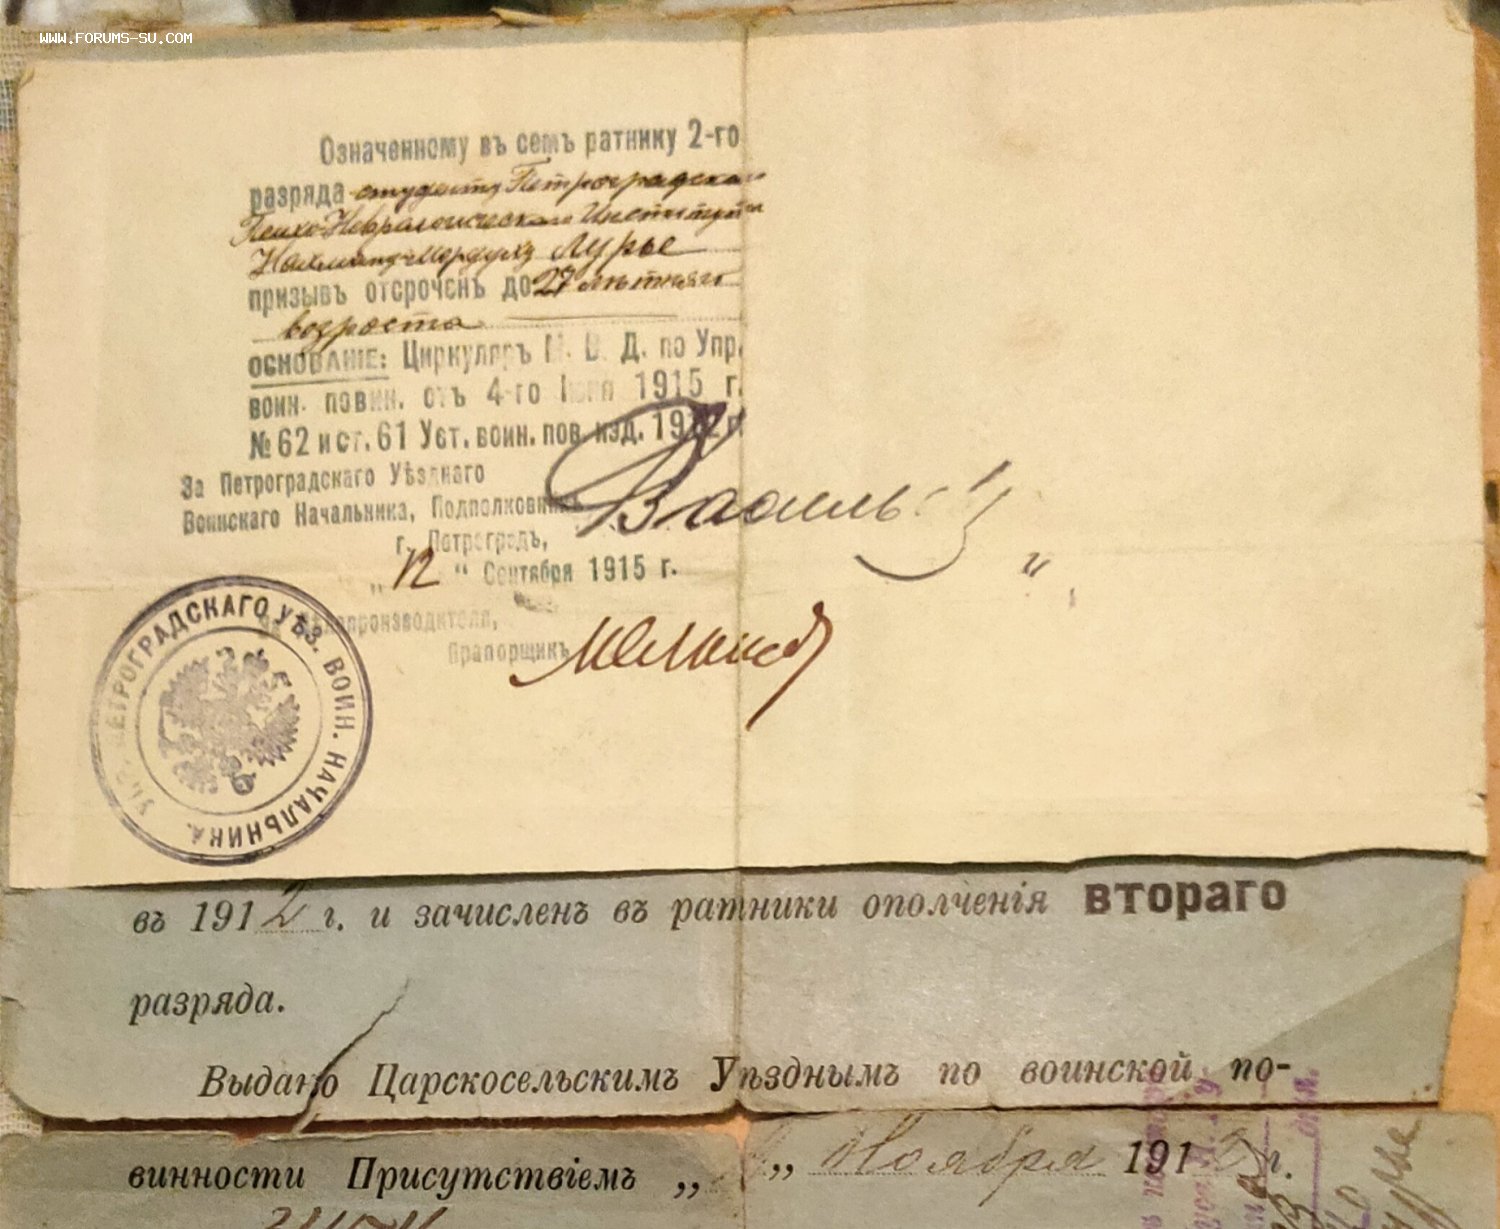 WWW.FORUMS-SU.COM
Означенному въ семъ ратнику 2-го
разряда студенту Петроградскаго
Психо-Неврологическаго Института
Нахману-Мордуху Лурье
призывъ отсроченъ до 27 лѣтняго
возроста
ОСНОВАНІЕ: Циркуляръ М. В. Д. по Упр.
воин. повин. отъ 4-го Іюня 1915 г.
№ 62 и ст. 61 Уст. воин. пов. изд. 1912 г.
За Петроградскаго Уѣзднаго
Воинскаго Начальника, Подполковникъ
г. Петроградъ,
„ 12 “ Сентября 1915 г.
За Дѣлопроизводителя,
Прапорщикъ
ПЕТРОГРАДСКАГО УѢЗ. ВОИН. НАЧАЛЬНИКА.
въ 1912 г. и зачисленъ въ ратники ополченія второго
разряда.
Выдано Царскосельскимъ Уѣзднымъ по воинской по-
винности Присутствіемъ „ „ Ноября 1912 г.